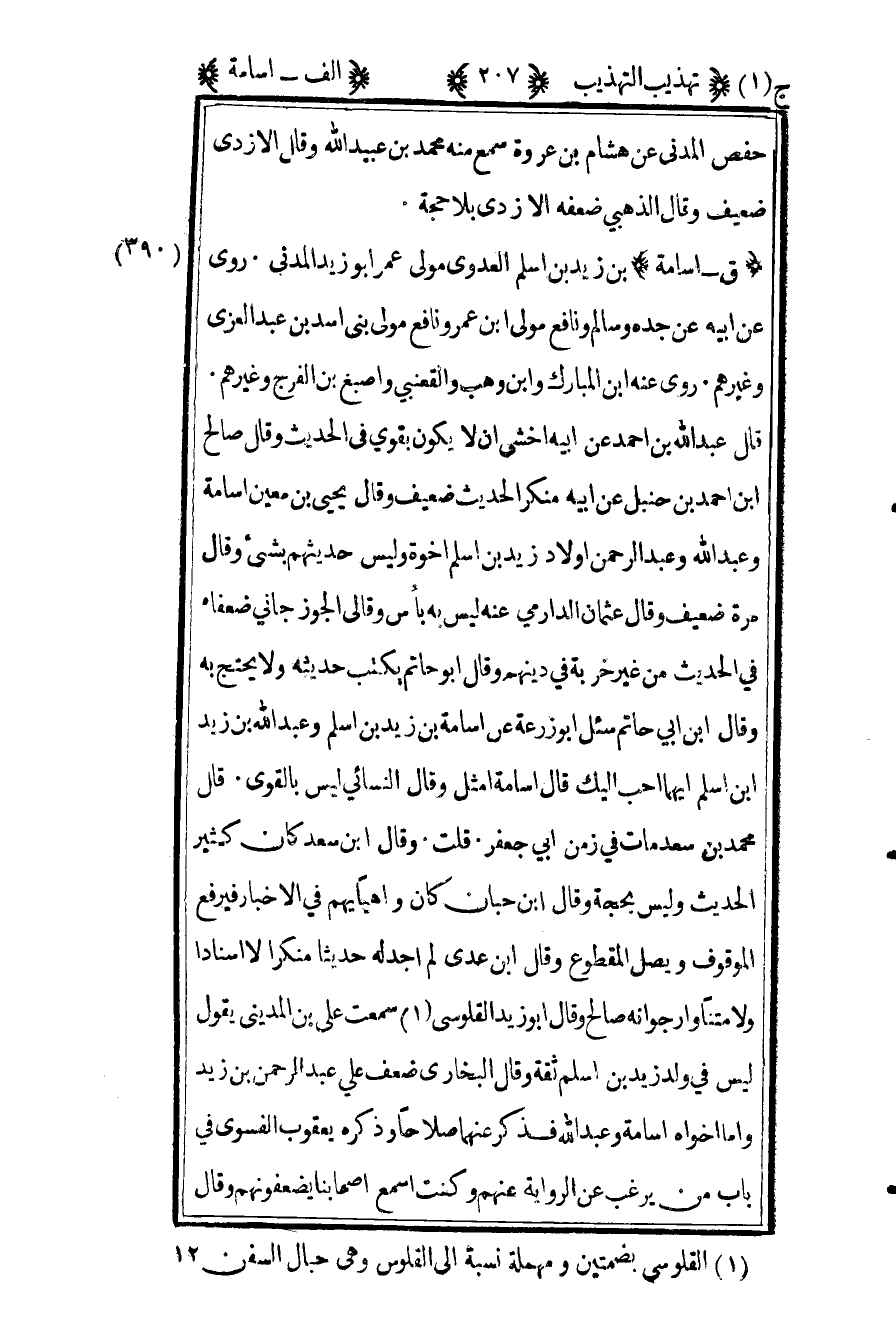 ج(١) ﴿ تهذيب التهذيب ﴾ ﴿ ٢٠٧ ﴾ ﴿ الف ـ اسامة ﴾
حفص المدنى عن هشام بن عروة سمع منه محمد بن عبيدالله وقال الازدى
ضعيف وقال الذهبي ضعفه الازدى بلاحجة ٠
﴿ ق ـ اسامة ﴾ بن زيد بن اسلم العدوى مولى عمر ابوزيد المدني ٠ روى (٣٩٠)
عن ابيه عن جده وسالم ونافع مولى ابن عمر ونافع مولى بنى اسد بن عبدالعزى
وغيرهم ٠ روى عنه ابن المبارك وابن وهب والقعنبي واصبغ بن الفرج وغيرهم ٠
قال عبدالله بن احمد عن ابيه اخشى ان لا يكون بقوي فى الحديث وقال صالح
ابن احمد بن حنبل عن ابيه منكر الحديث ضعيف وقال يحيى بن معين اسامة
وعبدالله وعبدالرحمن اولاد زيد بن اسلم اخوة وليس حديثهم بشئ وقال
مرة ضعيف وقال عثمان الدارمي عنه ليس به بأس وقالى الجوزجاني ضعفاء
في الحديث من غير خربة في دينهم وقال ابوحاتم يكتب حديثه ولا يحتج به
وقال ابن ابي حاتم سئل ابوزرعة عن اسامة بن زيد بن اسلم وعبدالله بن زيد
ابن اسلم ايهما احب اليك قال اسامة امثل وقال النسائي ليس بالقوى ٠ قال
محمد بن سعد مات في زمن ابي جعفر ٠ قلت ٠ وقال ابن سعد كان كثير
الحديث وليس بحجة وقال ابن حبان كان واهياً يهم في الاخبار فيرفع
الموقوف ويصل المقطوع وقال ابن عدى لم اجد له حديثا منكرا لا اسنادا
ولا متناً وارجو انه صالح وقال ابوزيد القلوسى (١) سمعت علي بن المديني يقول
ليس في ولد زيد بن اسلم ثقة وقال البخارى ضعف علي عبدالرحمن بن زيد
واما اخواه اسامة وعبدالله فذكر عنهما صلاحاً وذكره يعقوب الفسوى في
باب من يرغب عن الرواية عنهم وكنت اسمع اصحابنا يضعفونهم وقال
(١) القلوسي بضمتين و مهملة نسبة الى القلوس وهى حبال السفن ١٢